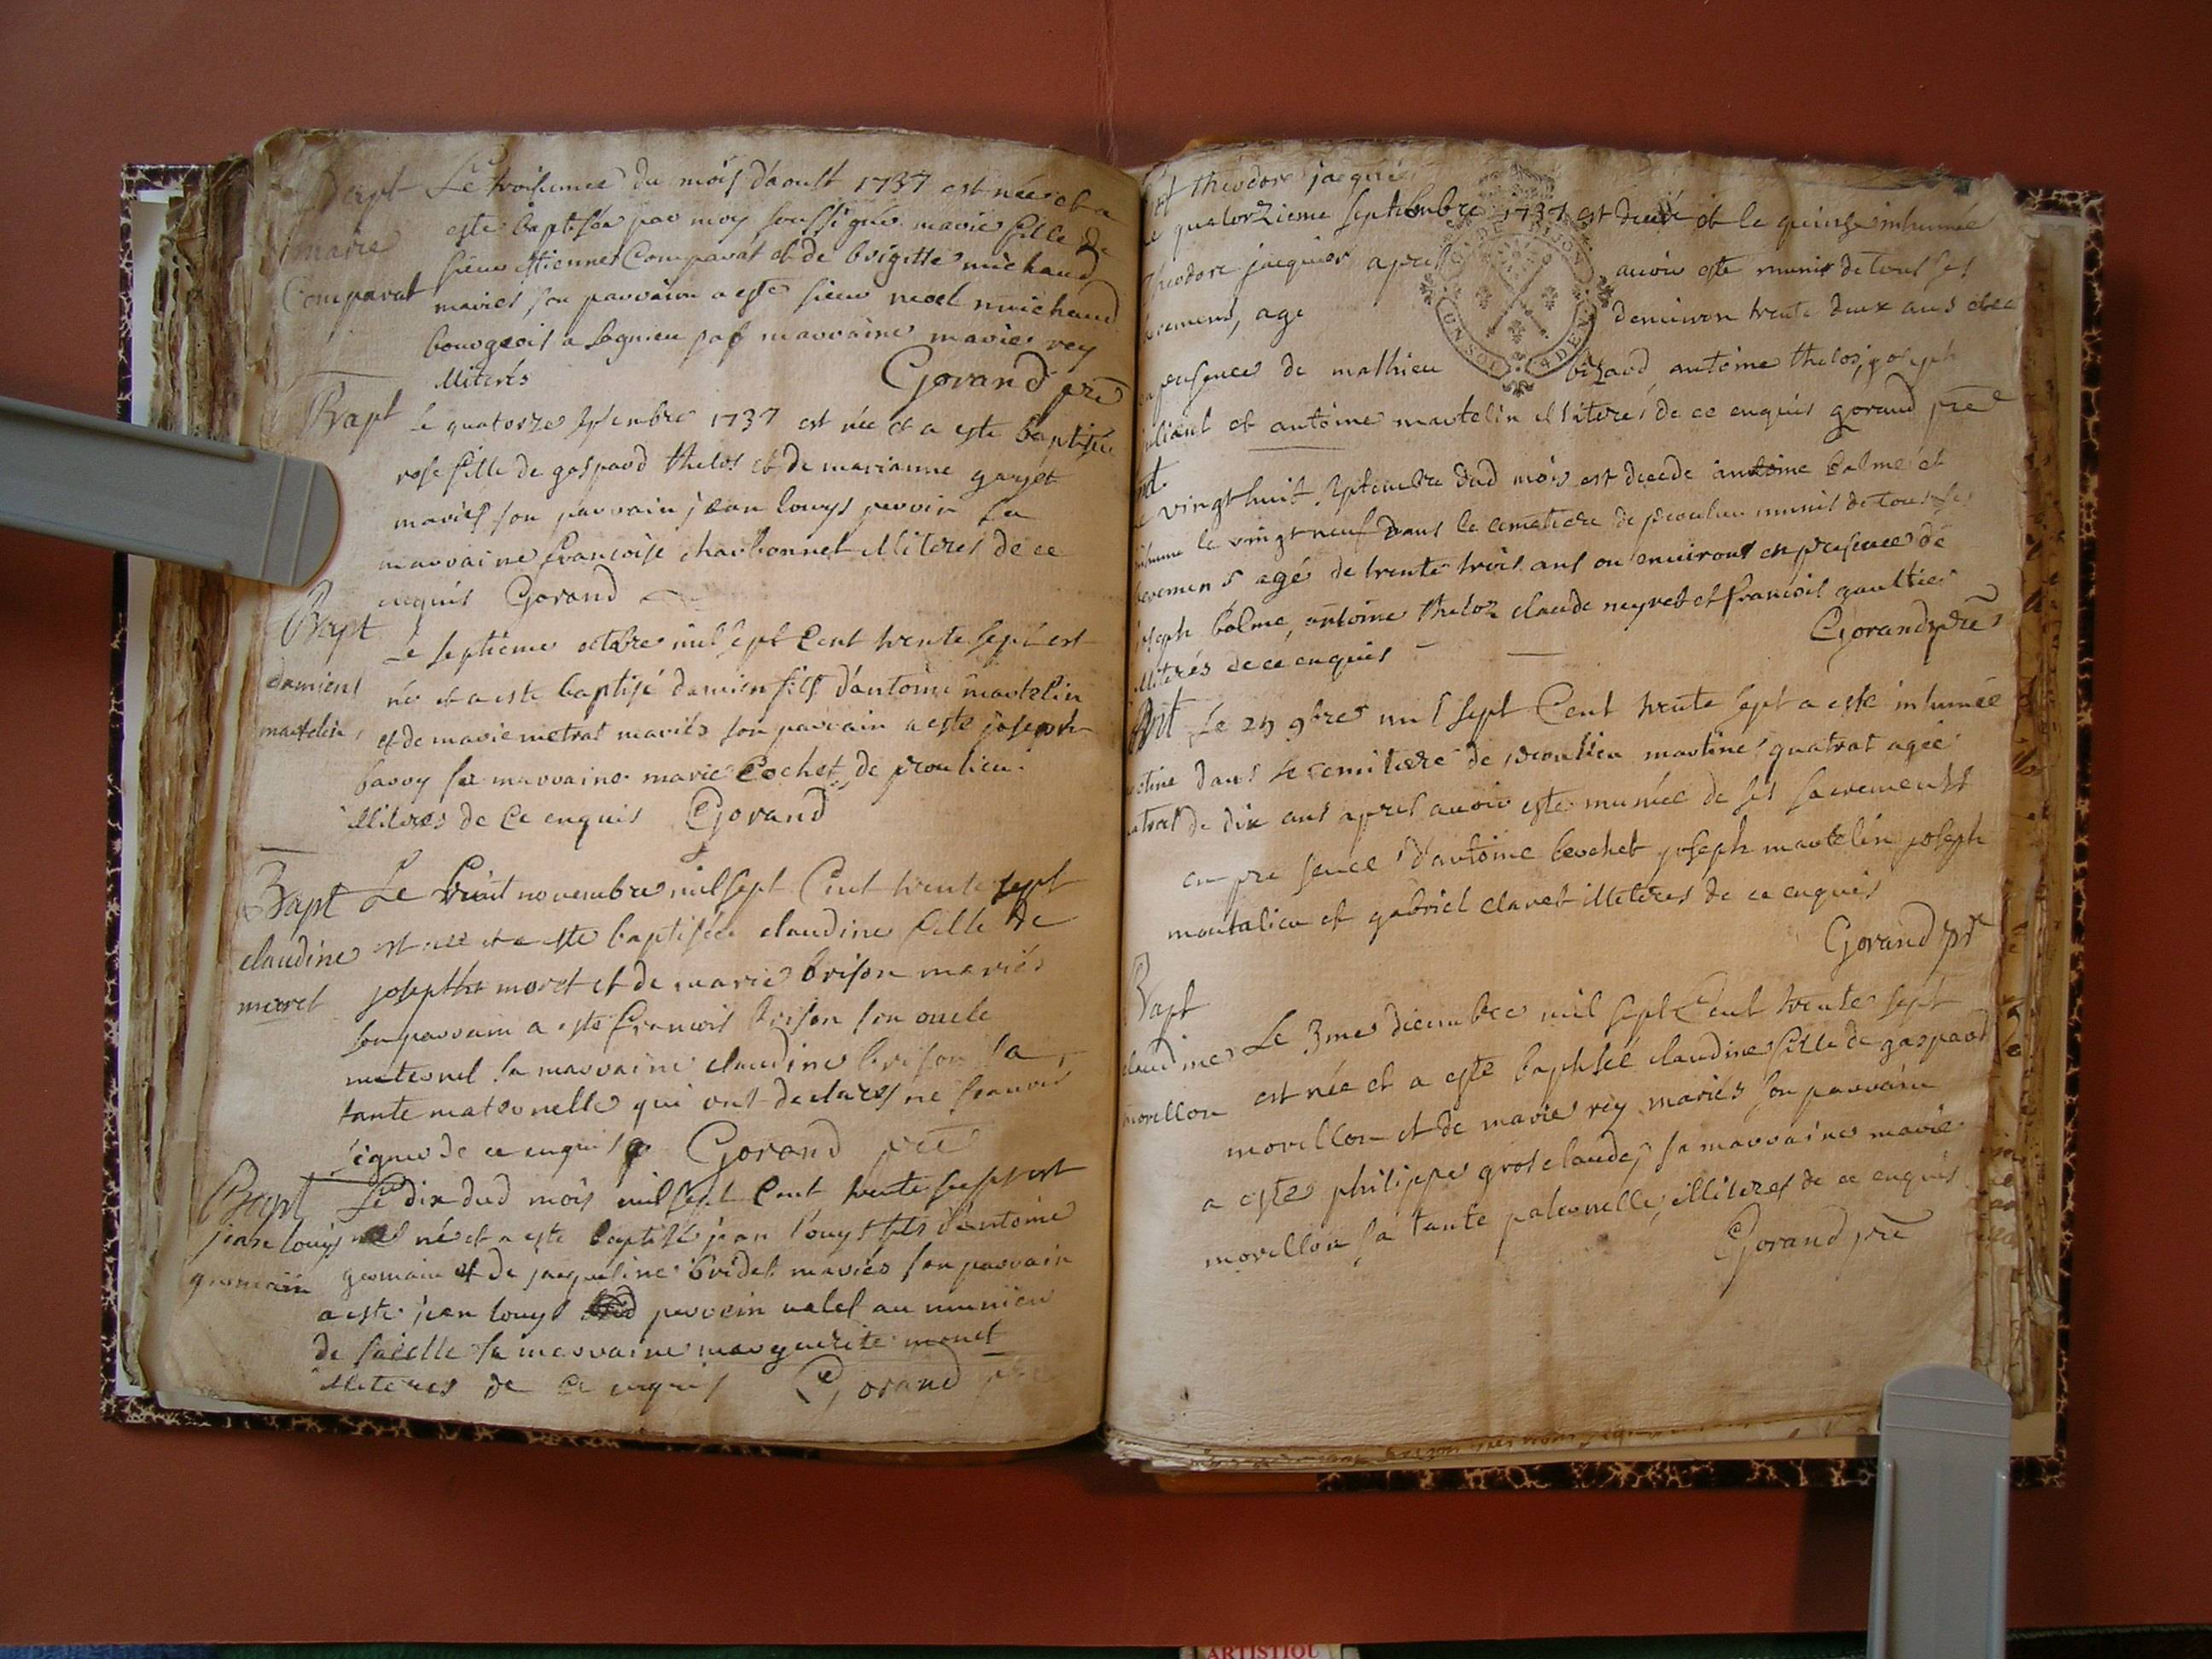 Bapt Le troisieme du mois d'aoust 1737 est née et a
marie esté baptisée par moy soussigné marie fille de
Comparat sieur estienne Comparat et de brigitte michaud
mariés son parrain a esté sieur noel michaud
bourgeois a lagnieu sa marraine marie rey
illiterés Gorand pre
Bapt le quatorze septembre 1737 est née et a esté baptisée
rose fille de gaspard thelos et de marianne
mariés son parrain jean louys perrin sa
marraine francoise charbonnet illiterés de ce
enquis Gorand
Bapt Le septieme octobre mil sept Cent trente sept est
damien né et a esté baptisé damien fils d'antoine martelin
martelin et de marie metrat mariés son parrain a esté joseph
sa marraine marie Cochet de proulieu
illiteres de Ce enquis Gorand
Bapt Le huit novembre mil sept Cent trente sept
claudine est née et a esté baptisée claudine fille de
moret joseph moret et de marie brison mariés
son parrain a esté francois brison son oncle
maternel sa marraine claudine brison sa
tante maternelle qui ont declarés ne scavoir
signer de ce enquis Gorand pre
Bapt Le dix dud mois mil sept Cent trente sept est
jean louys né et a esté baptisé jean louys fils d'antoine
germain germain et de jacqueline bridet mariés son parrain
a esté jean louys perrin valet au munier
de sa marraine marguerite monet
illiteres de Ce enquis Gorand pre
theodore jacquié
le quatorzieme septembre 1737 est decedé et le quinze inhumé
theodore jacquier apres avoir esté munis de tous ses
sacremens, agé denviron trente deux ans et en
presence de mathieu antoine thelos, joseph
et antoine martelin illiterés de ce enquis gorand pre
DE DIJON
UN SOL
le vingt huit septembre dud mois est decedé antoine balme et
inhumé le vingt neuf dans le cimetiere de proulieu munis de tous ses
sacremens agé de trente trois ans ou environs en presence de
joseph balme, antoine theloz claude neyret et francois gaultier
illiterés de ce enquis Gorand pre
Le 29 9bre mil sept Cent trente sept a esté inhumée
dans le cimitiere de proulieu martine quatrat agée
de dix ans apres avoir esté munée de ses sacrements
en presence d'antoine beochet joseph martelin joseph
montalieu et gabriel claret illiteres de ce enquis
Gorand pre
Bapt
claudine Le 3me decembre mil sept Cent trente sept
morellon est née et a esté baptisée claudine fille de gaspard
morellon et de marie rey mariés son parrain
a esté philippe grosclaude, sa marraine marie
morellon sa tante paternelle, illiteres de ce enquis
Gorand pre
ARTISTIQU